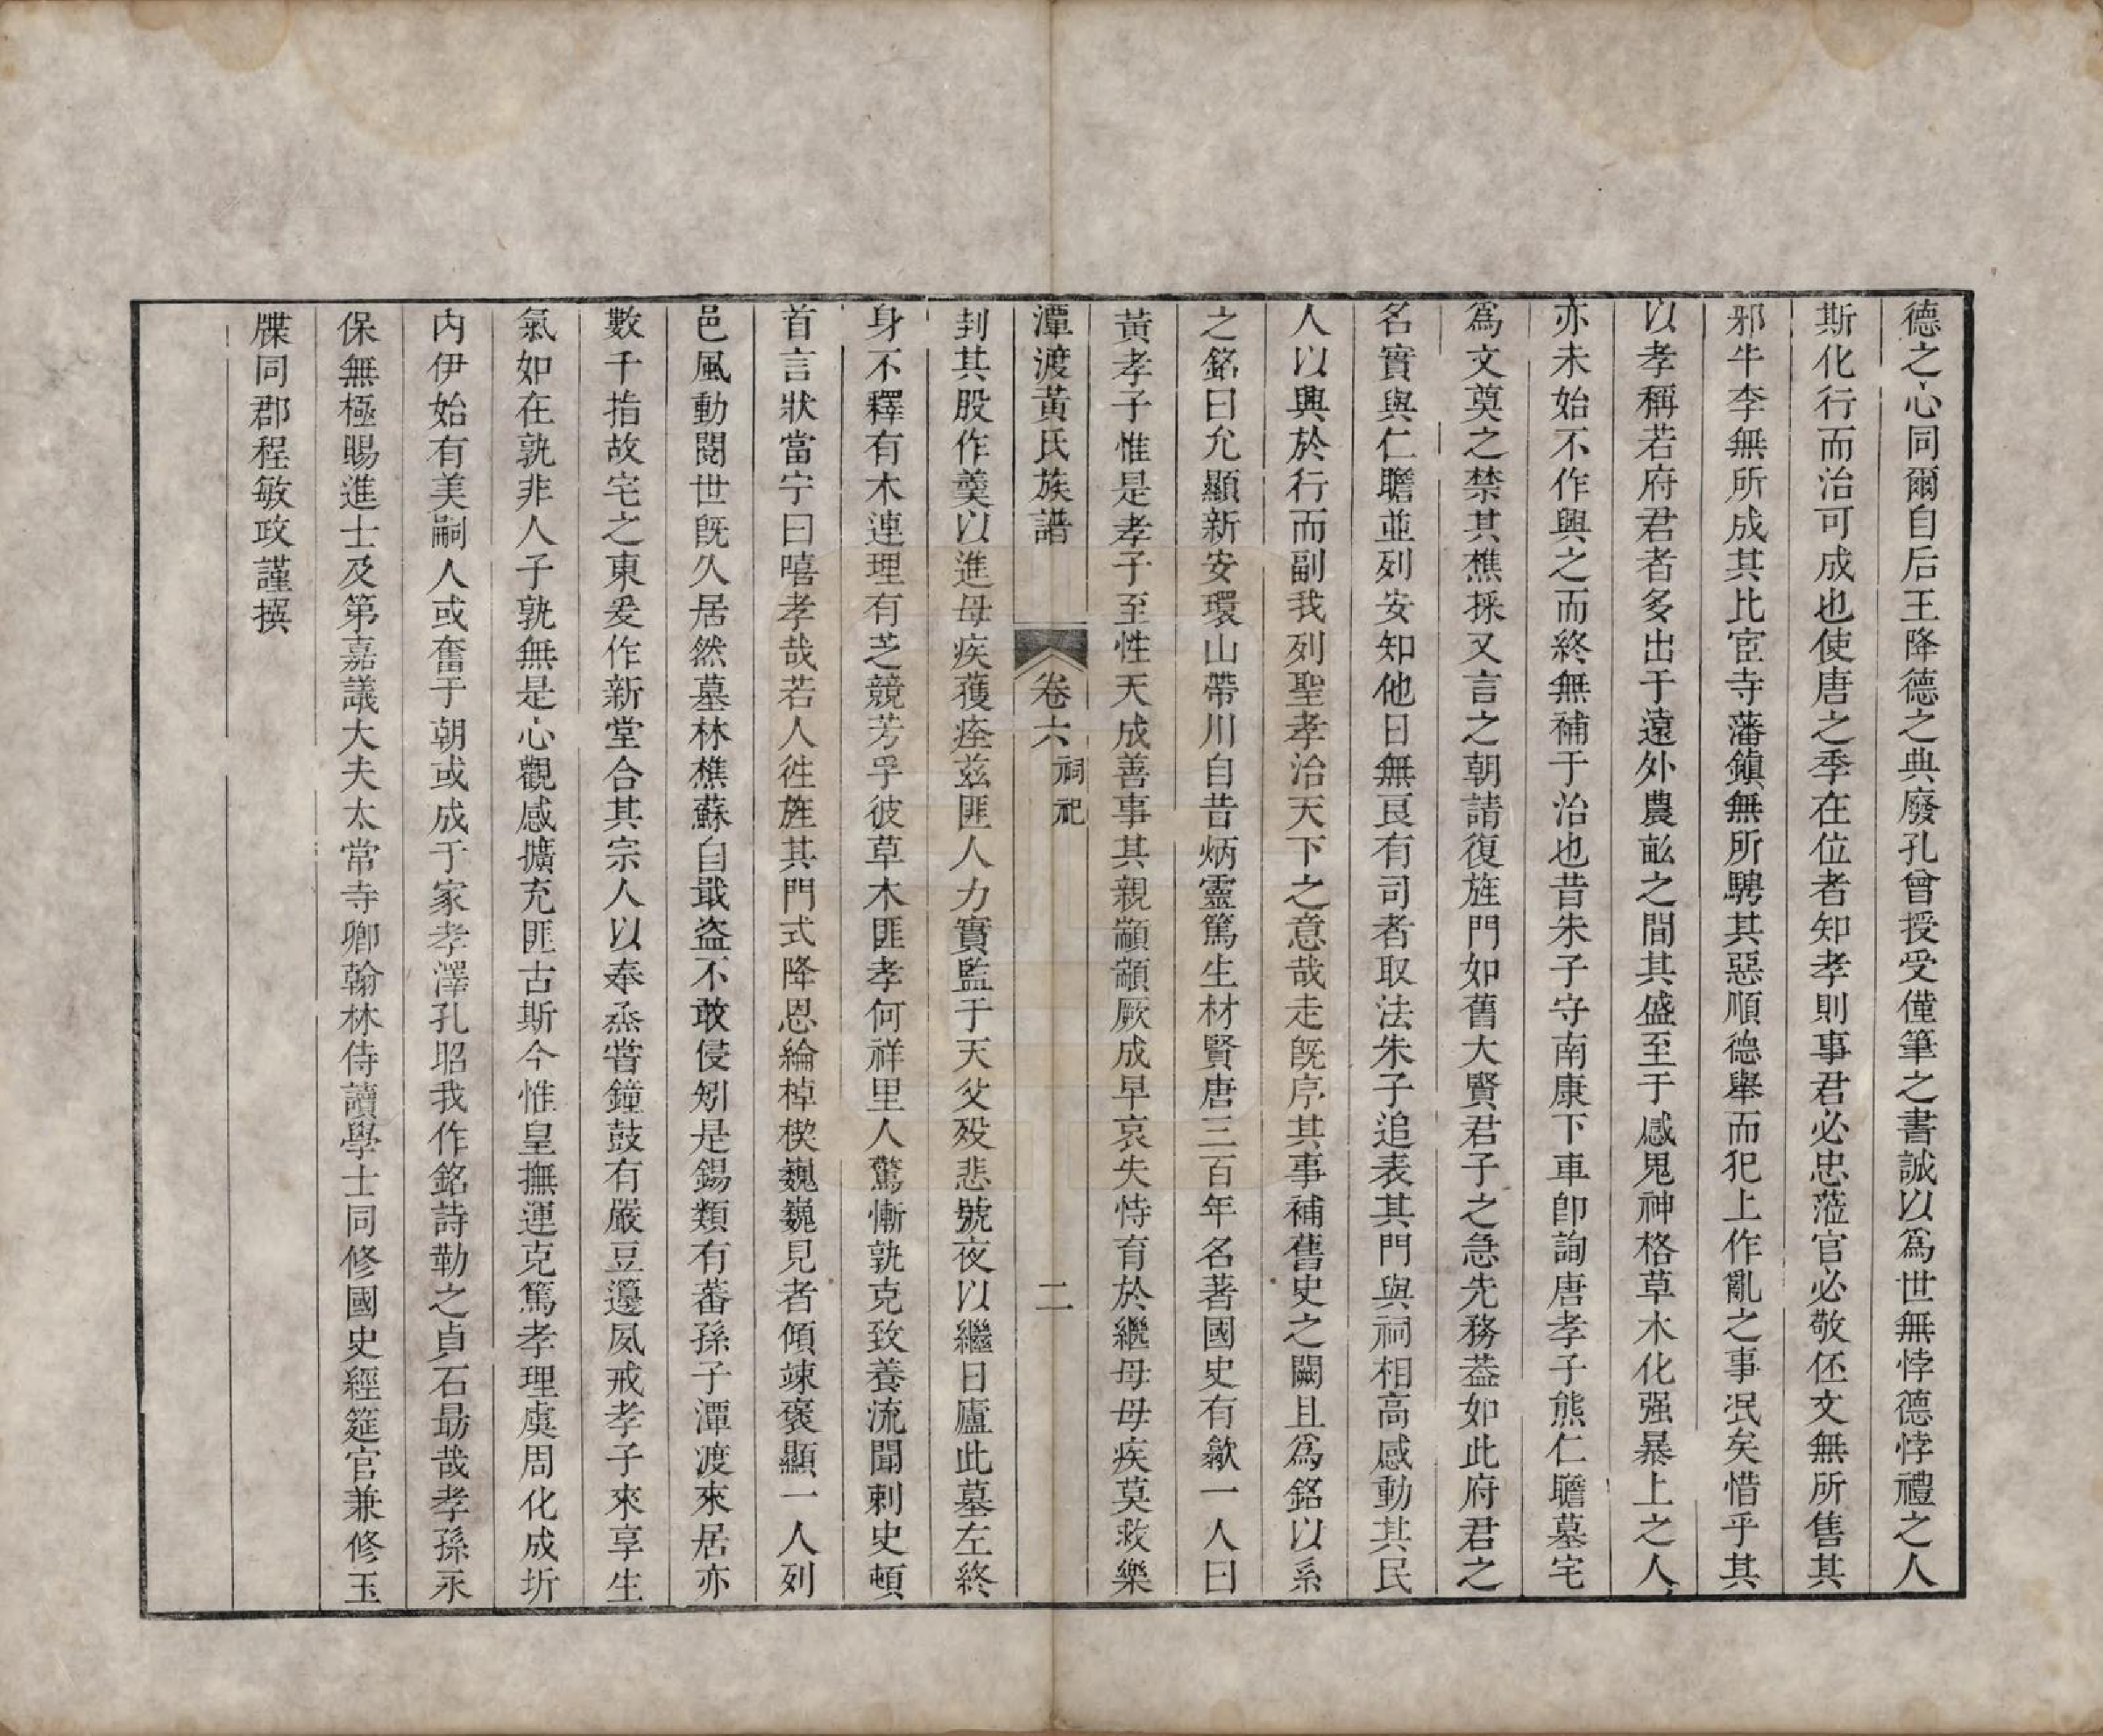 德之心同爾自后王降德之典廢孔曾授受僅筆之書誠以爲世無悖德悖禮之人
斯化行而治可成也使唐之季在位者知孝則事君必忠蒞官必敬伾文無所售其
邪牛李無所成其比宦寺藩鎮無所騁其惡順德舉而犯上作亂之事泯矣惜乎其
以孝稱若府君者多出于遠外農畝之間其盛至于感鬼神格草木化强暴上之人
亦未始不作興之而終無補于治也昔朱子守南康下車卽詢唐孝子熊仁瞻墓宅
爲文奠之禁其樵採又言之朝請復旌門如舊大賢君子之急先務葢如此府君之
名實與仁瞻並列安知他日無良有司者取法朱子追表其門與祠相高感動其民
人以興於行而副我列聖孝治天下之意哉走旣序其事補舊史之闕且爲銘以系
之銘曰允顯新安環山帶川自昔炳靈篤生材賢唐三百年名著國史有歙一人曰
黃孝子惟是孝子至性天成善事其親顓顓厥成早哀失恃育於繼母母疾莫救樂
潭渡黃氏族譜 卷六 祠祀 二
刲其股作羹以進母疾獲痊兹匪人力實監于天父歿悲號夜以繼日廬此墓左終
身不釋有木連理有芝競芳乎彼草木匪孝何祥里人驚慚孰克致養流聞刺史頓
首言狀當宁曰嘻孝哉若人徃旌其門式降恩綸棹楔巍巍見者傾竦褒顯一人列
邑風動閱世旣久居然墓林樵蘇自戢盗不敢侵矧是錫類有蕃孫子潭渡來居亦
數千指故宅之東爰作新堂合其宗人以奉烝嘗鐘鼓有嚴豆籩夙戒孝子來享生
氣如在孰非人子孰無是心觀感擴充匪古斯今惟皇撫運克篤孝理虞周化成圻
内伊始有美嗣人或奮于朝或成于家孝澤孔昭我作銘詩勒之貞石勗哉孝孫永
保無極賜進士及第嘉議大夫太常寺卿翰林侍讀學士同修國史經筵官兼修玉
牒同郡程敏政謹撰